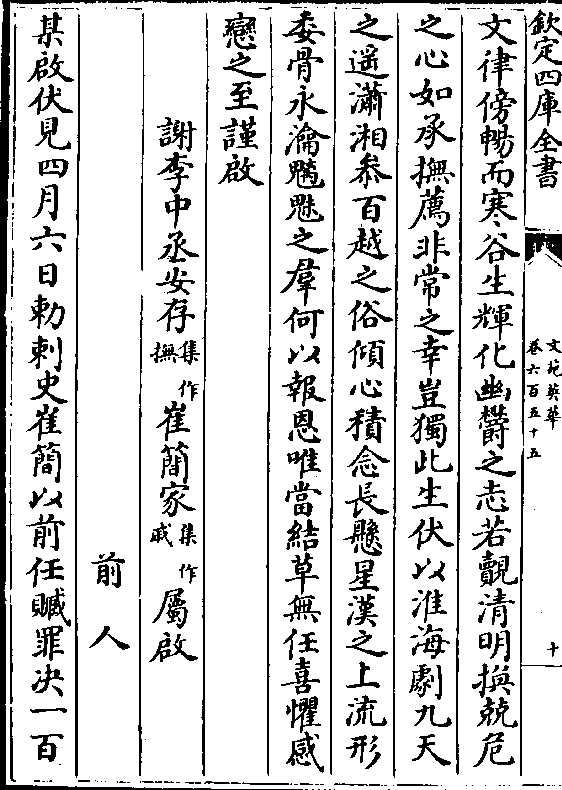 欽定四庫全書
文苑英華
卷六百五十五
十
文律傍暢而寒谷生輝化幽欝之志若覿清明換兢危
之心如承撫薦非常之幸豈獨此生伏以淮海劇九天
之遥瀟湘叅百越之俗傾心積念長懸星漢之上流形
委骨永淪魑魅之羣何以報恩唯當結草無任喜懼感
戀之至謹啟
謝李中丞安存集作撫崔簡家集作戚屬啟
前人
某啟伏見四月六日勅刺史崔簡以前任贓罪决一百